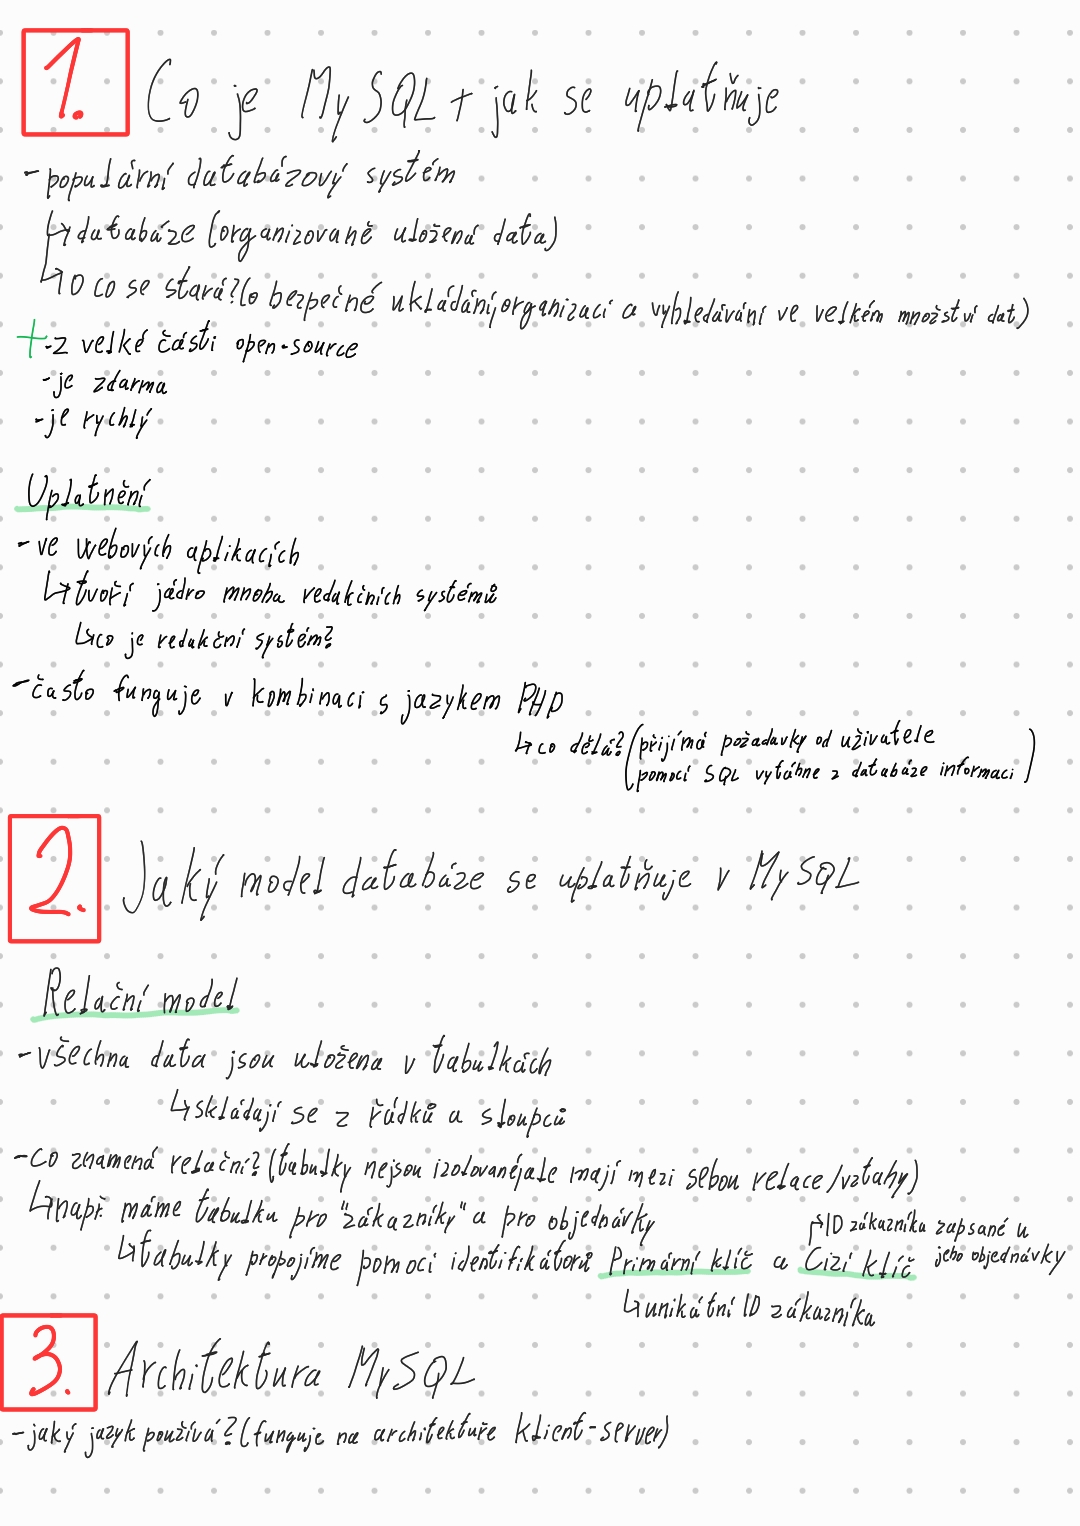 1. Co je MySQL + jak se uplatňuje
- populární databázový systém
↳ databáze (organizovaně uložená data)
↳ O co se stará? (o bezpečné ukládání, organizaci a vyhledávání ve velkém množství dat)
+ - z velké části open-source
- je zdarma
- je rychlý
Uplatnění
- ve webových aplikacích
↳ tvoří jádro mnoha redakčních systémů
↳ co je redakční systém?
- často funguje v kombinaci s jazykem PHP
↳ co dělá? (přijímá požadavky od uživatele
pomocí SQL vytáhne z databáze informaci)
2. Jaký model databáze se uplatňuje v MySQL
Relační model
- všechna data jsou uložena v tabulkách
↳ skládají se z řádků a sloupců
- co znamená relační? (tabulky nejsou izolované, ale mají mezi sebou relace/vztahy)
↳ např. máme tabulku pro "zákazníky" a pro objednávky
↳ tabulky propojíme pomocí identifikátorů Primární klíč a Cizí klíč
↱ ID zákazníka zapsané u
jeho objednávky
↳ unikátní ID zákazníka
3. Architektura MySQL
- jaký jazyk používá? (funguje na architektuře klient-server)